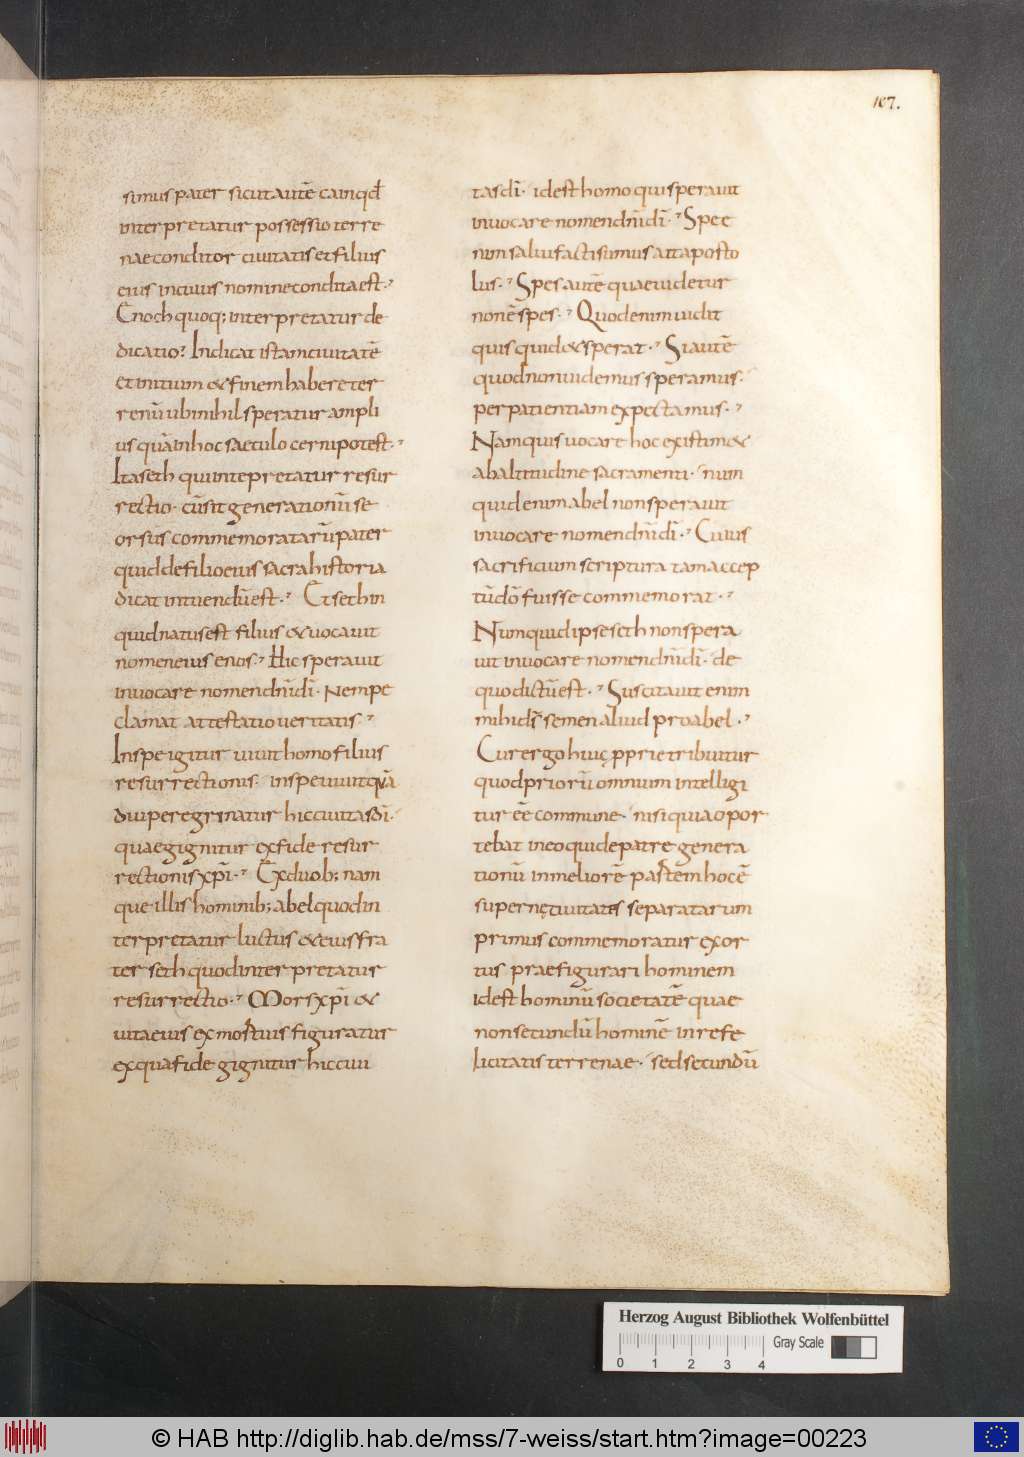 107.
simus pater sicut autē cain qđ
interpretatur possessio terre
nae conditor civitatis et filius
eius incuius nomine condita est.
Enoch quoq; interpretatur de
dicatio? Indicat istam ciuitatē
et initium & finem habere ter
renū ubi nihil speratur ampli
us quā in hoc saeculo cerni potest.
Ita seth qui intepretatur resur
rectio. cū sit generationū se
orsus commemoratarū pater
quid de filio eius sacra historia
dicat intuendū est. Et seth in
quid natus est filius & uocauit
nomen eius enos. Hic sperauit
inuocare nomen dnī dī. Nempe
clamat attestatio ueritatis.
In spe igitur uiuit homo filius
resurrectionis. in spe uiuit quā
diu peregrinatur hic ciuitas dī.
quae gignitur ex fide resur
rectionis xpī. Ex duob; nam
que illis hominib; abel quod in
terpretatur luctus & eius fra
ter seth quod interpretatur
resurrectio. Mors xpī &
uita eius ex mortuis figuratur
ex qua fide gignitur hic ciui
tas dī. id est homo qui sperauit
inuocare nomen dnī dī. Spe e
nim salui facti sumus att aposto
lus. Spes autē quae uidetur
non ē spes. Quod enim uidit
quis quid & sperat. Si autē
quod non uidemus speramus.
per patientiam expectamus.
Nam quis uocare hoc existim&
ab altitudine sacramenti. num
quid enim abel non sperauit
inuocare nomen dnī dī. Cuius
sacrificium scriptura tam accep
tū dō fuisse commemorat.
Numquid ipse seth non spera
uit inuocare nomen dnī dī. de
quo dictū est. Suscitauit enim
mihi ds semen aliud pro abel.
Cur ergo huic pprie tribuitur
quod piorū omnium intelligi
tur eē commune. nisi quia opor
tebat in eo qui de patre genera
tionū in meliorē partem hoc ē
supernę ciuitatis separatarum
primus commemoratur exor
tus praefigurari hominem
id est hominū societatē quae
non secundū hominē in re fe
licitatis terrenae. sed secundū
Herzog August Bibliothek Wolfenbüttel
Gray Scale
0 1 2 3 4
© HAB http://diglib.hab.de/mss/7-weiss/start.htm?image=00223